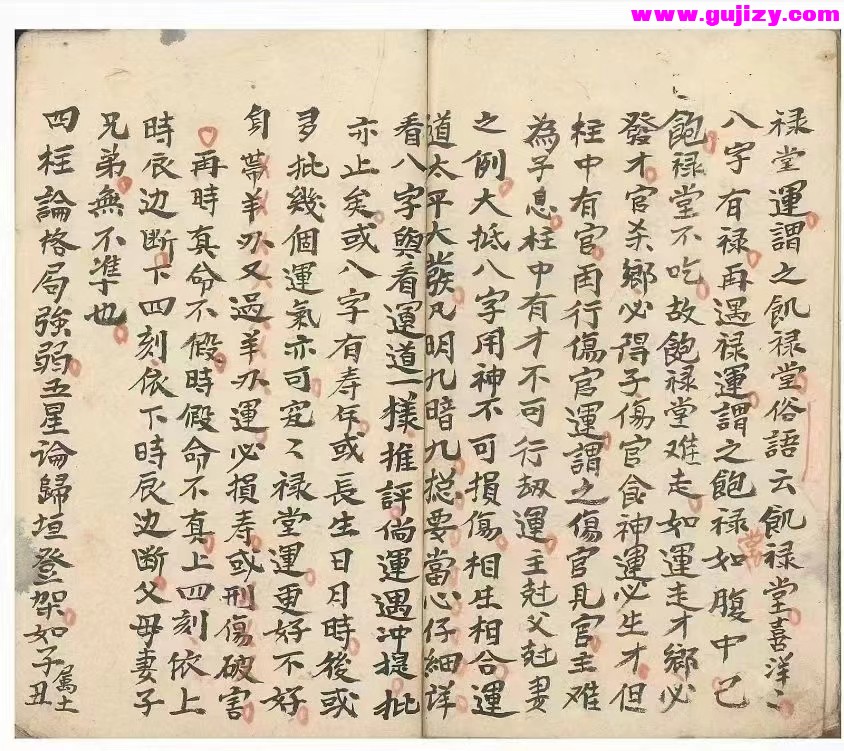 www.gujizy.com
禄堂運謂之飢禄堂俗語云飢禄堂喜洋〻
八字有禄再遇禄運謂之飽禄如腹中已
飽禄堂不吃故飽禄堂难走如運走才鄉必
發才官杀鄉必得子傷官食神運必生才但
柱中有官雨行傷官運謂之傷官見官主难
為子息柱中有才不可行刼運主尅父尅妻
之例大抵八字用神不可損傷相生相合運
道太平大發凡明九暗九捴要當心仔細详
看八字與看運道一樣推評倘運遇冲提批
亦止矣或八字有寿年或長生日月時後或
多批幾個運氣亦可定〻禄堂運更好不好
自带羊刃又過羊刃運必損寿或刑傷破害
再時真命不假時假命不真上四刻依上
時辰边断下四刻依下時辰边断父母妻子
兄弟無不準也
四柱論格局強弱五星論歸垣登架如子丑属土
常